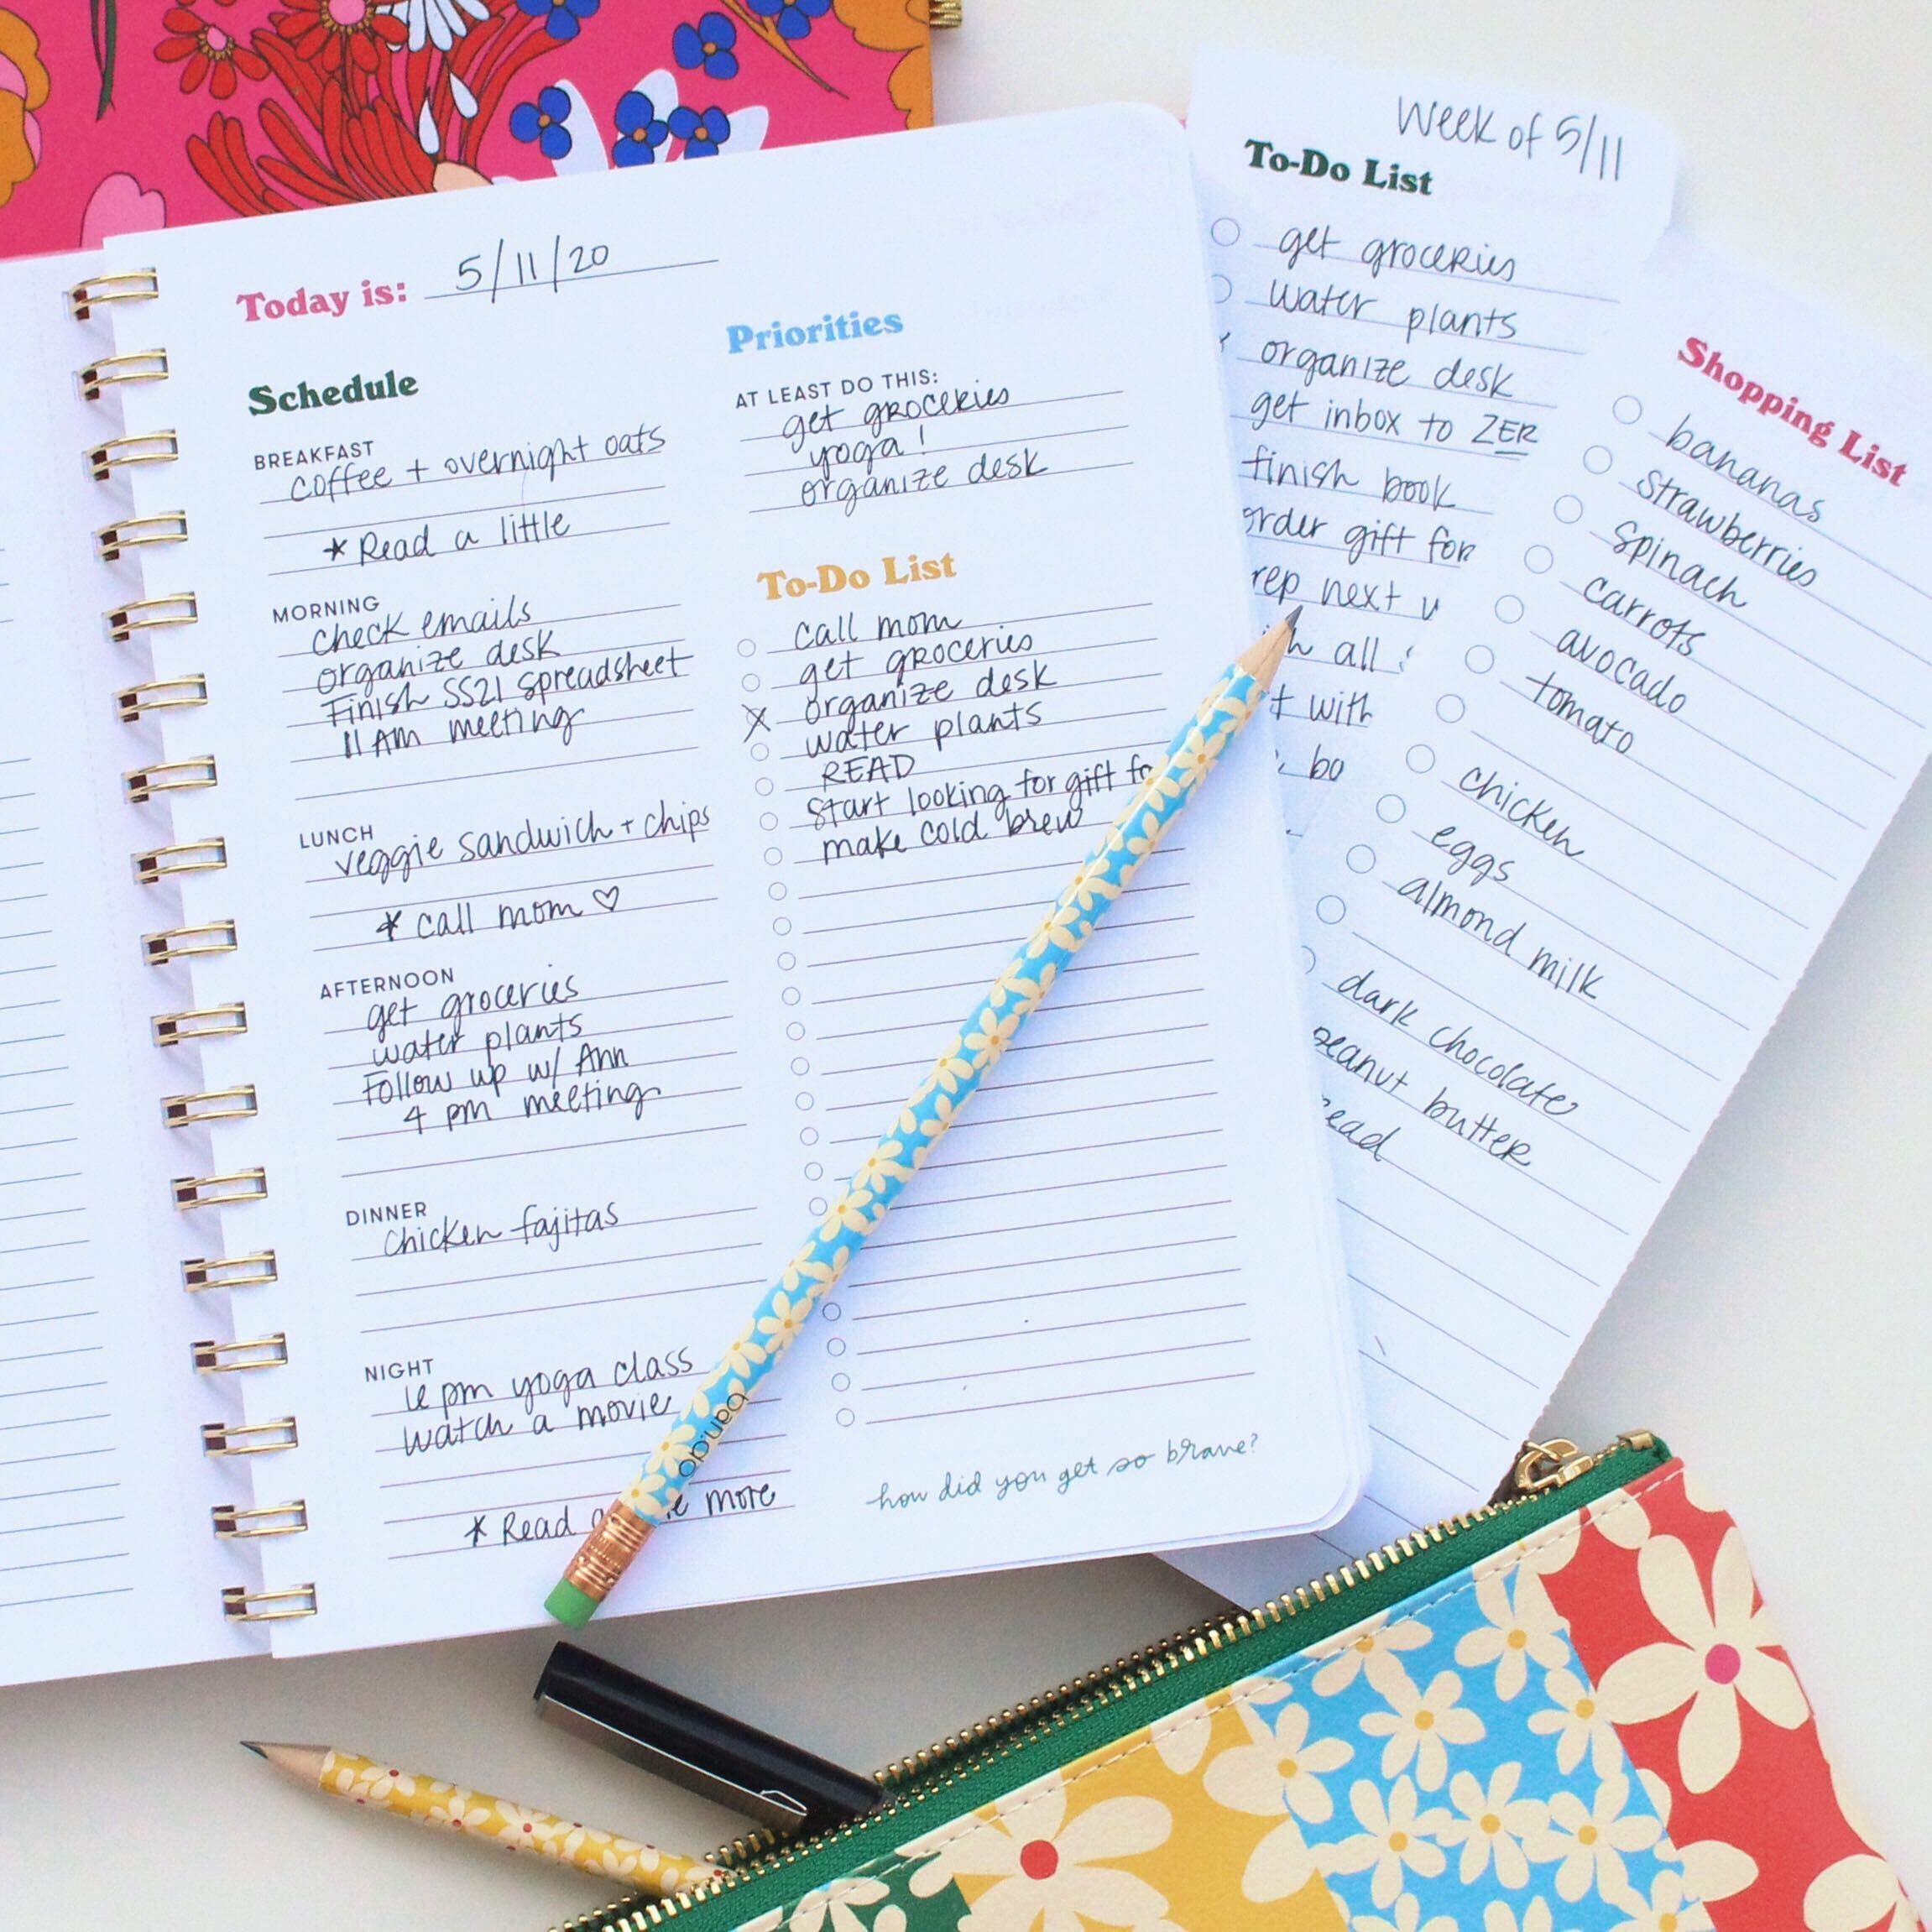 Today is: 5/11/20
Schedule
BREAKFAST
coffee + overnight oats
* Read a little
MORNING
check emails
organize desk
Finish SS21 spreadsheet
11 AM meeting
LUNCH
veggie sandwich + chips
* call mom ♡
AFTERNOON
get groceries
water plants
Follow up w/ Ann
4 pm meeting
DINNER
chicken fajitas
NIGHT
6 pm yoga class
watch a movie
* Read more
Priorities
AT LEAST DO THIS:
get groceries
yoga!
organize desk
To-Do List
call mom
get groceries
X organize desk
water plants
READ
start looking for gift
make cold brew
how did you get so brave?
ban.do
Week of 5/11
To-Do List
get groceries
water plants
organize desk
get inbox to
finish book
gift for
next
all
with
Shopping List
bananas
strawberries
spinach
carrots
avocado
tomato
chicken
eggs
almond milk
dark chocolate
butter